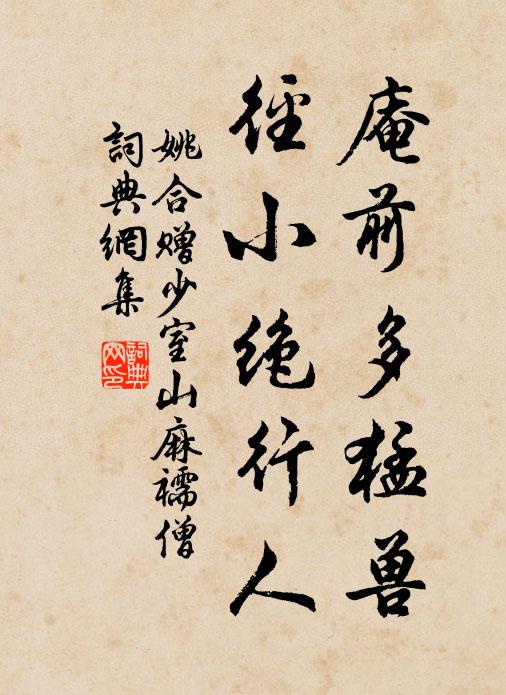 庵前多猛兽
径小绝行人
姚合赠少室山麻襦僧
詞典網集
詞典
网印